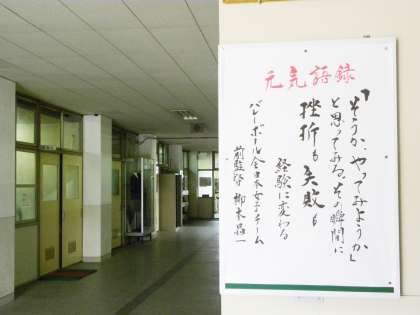 元気語録
「そうか、やってみようか」
と思ってみる。その瞬間に
挫折も失敗も
経験に変わる
バレーボール全日本女子チーム
前監督 柳本晶一